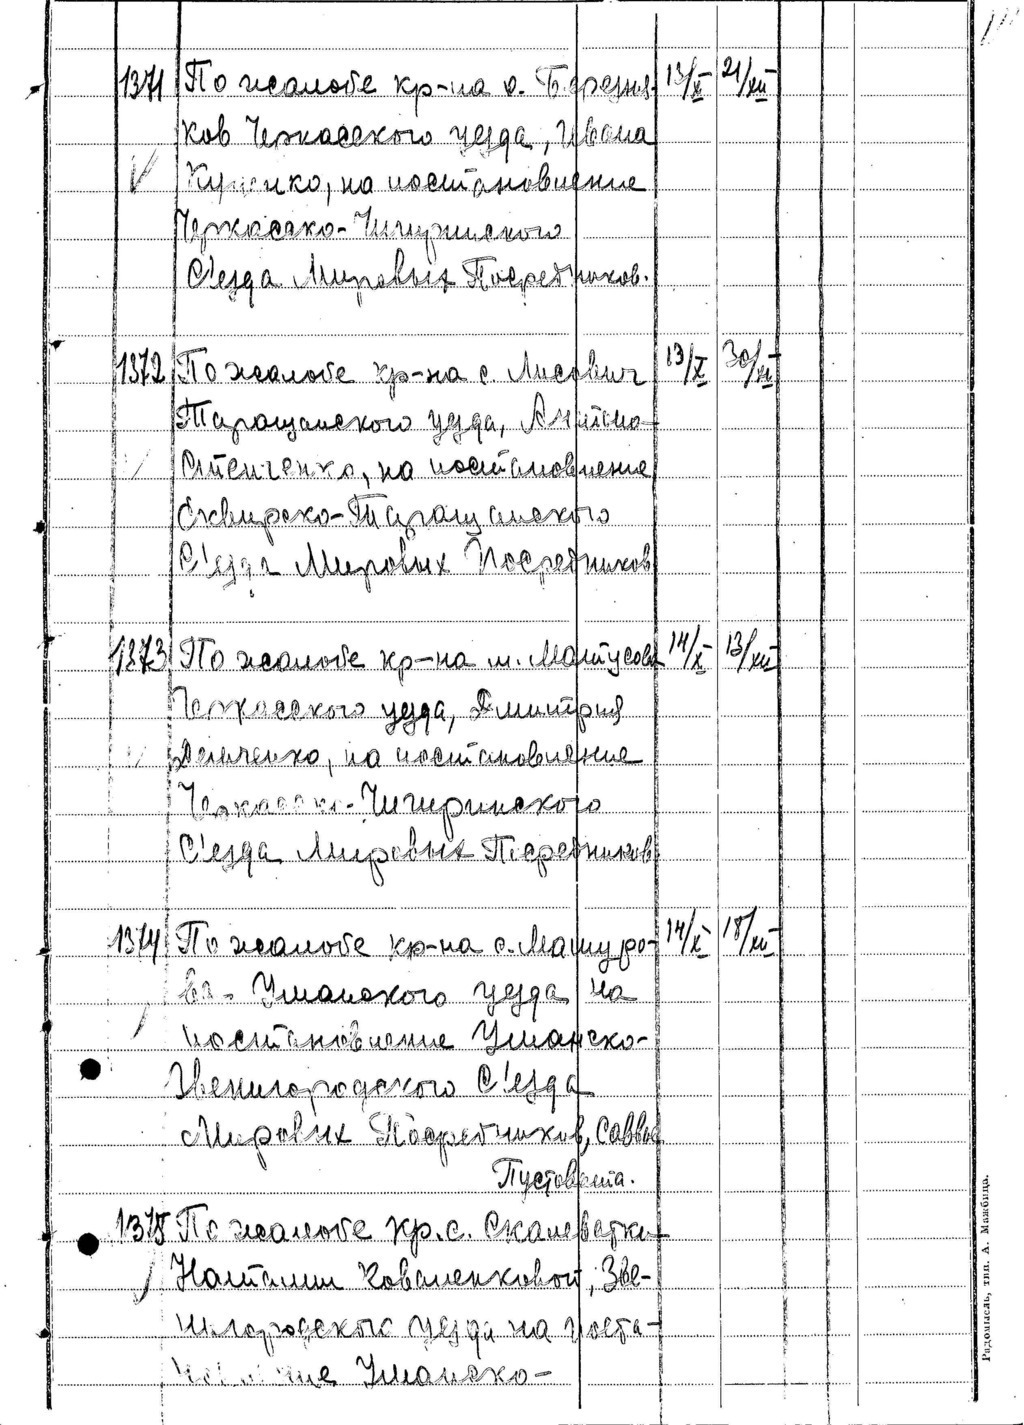 1371 По жалобе кр-на с. Березня- 13/X 21/XII
ков Черкасского уезда, Ивана
на постановление
Черкасско-Чигиринского
С'езда Мировых Посредников.
1372 По жалобе кр-на с. Лисович 13/X 30/XI
Таращанского уезда,
на постановление
Сквирско-Таращанского
С'езда Мировых Посредников
1373 По жалобе кр-на м. Матусова 14/X 13/XII
Черкасского уезда, Дмитрия
на постановление
Черкасско-Чигиринского
С'езда Мировых Посредников
1374 По жалобе кр-на с. Машуро- 14/X 18/XII
ва - Уманского уезда на
постановление Уманско-
Звенигородского С'езда
Мировых Посредников, Саввы
Пустовита.
1375 По жалобе кр. с. Скалеватки
Наталии Коваленковой, Зве-
нигородского уезда на поста-
новление Уманско-
Радомысль, тип. А. Мажбица.